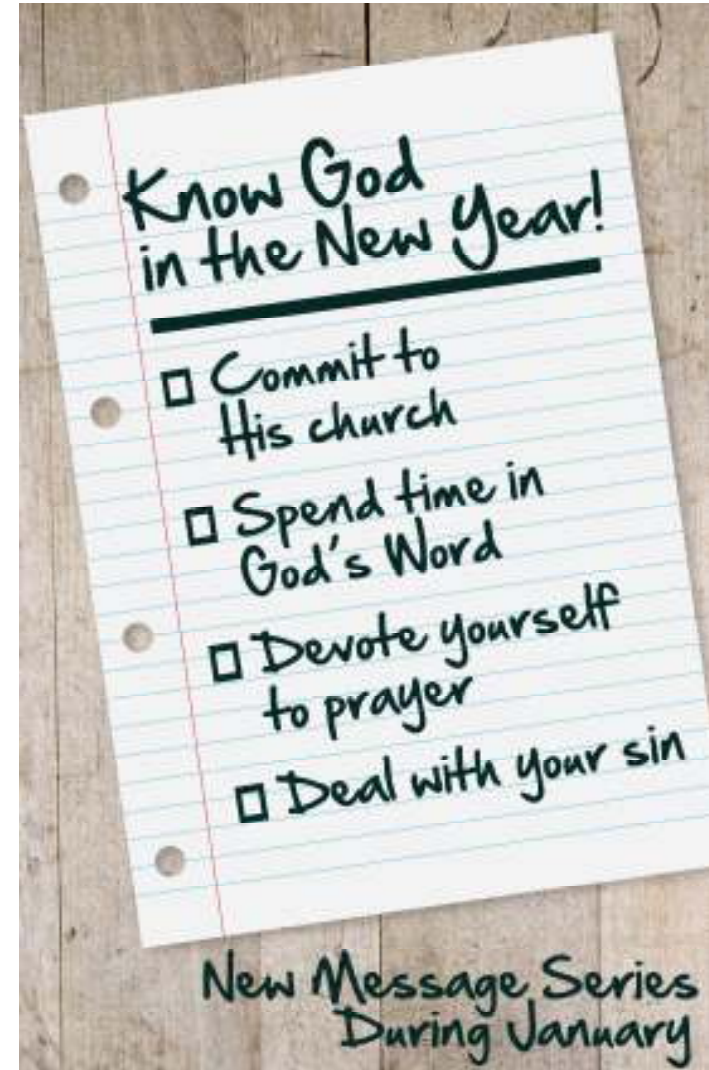 Know God
in the New Year!
Commit to
His church
Spend time in
God's Word
Devote yourself
to prayer
Deal with your sin
New Message Series
During January